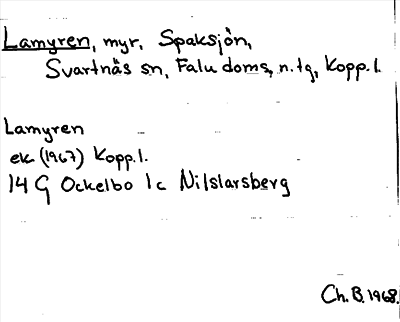 Lamyren, myr, Spaksjön,
Svartnäs sn, Falu doms, n. tg, Kopp. l.
Lamyren
ek (1967) Kopp. l.
14 G Ockelbo 1c Nilslarsberg
Ch. B. 1968.